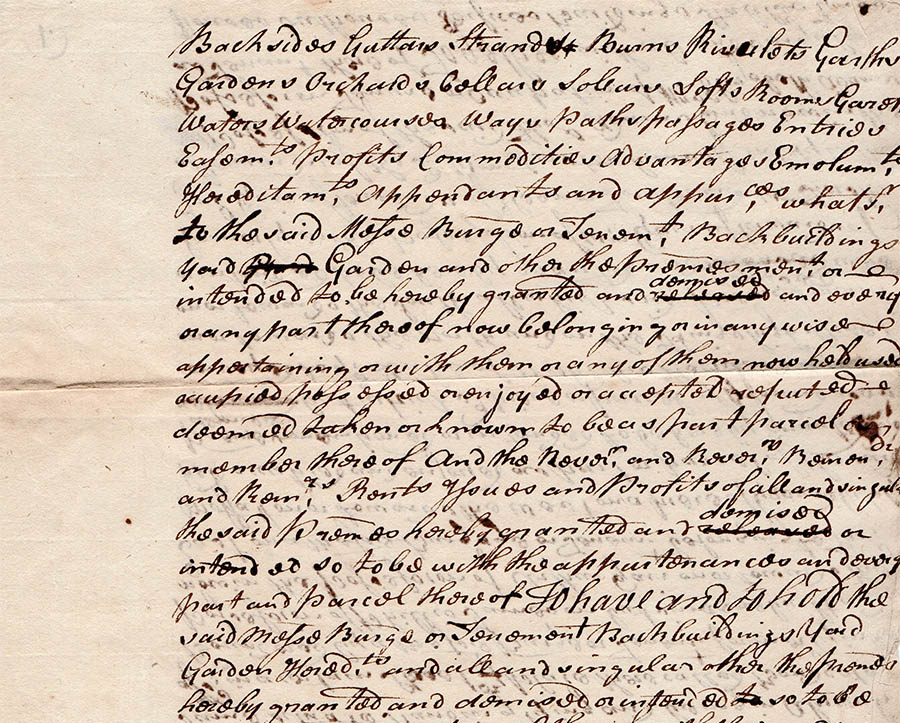 Backsides Guttars Strands Burns Rivulets Garths
Gardens Orchards Cellars Sollars Lofts Rooms Garetts
Waters Watercourses Ways Paths passages Entries
Easem.ts Profits Commodities Advantages Emolum.ts
Hereditam.ts Appendants and appur.ces whats.r
to the said Messe Burge or Tenem.t, Backbuildings
Yard Garden and other the premes ment.t or
intended to be hereby granted and demised released and every
or any part thereof now belonging or in any wise
appertaining or with them or any of them now held used
occupied possessed or enjoyed or accepted reputed
deemed taken or known to be as part parcel or
member thereof And the Rever.n and Rever.ns Remen.dr
and Rem.rs Rents Issues and Profits of all and singular
the said Premes hereby granted and demised released or
intended so to be with the appurtenances and every
part and parcel thereof To have and to hold the
said Messe Burge or Tenement Backbuildings Yard
Garden Hered.ts and all and singular other the premes
hereby granted and demised or intended to so to be